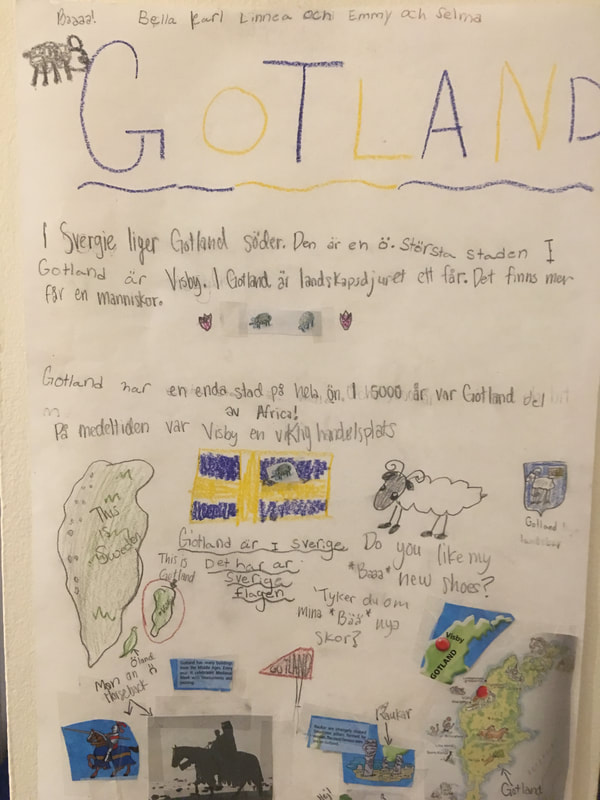 Baaaa! Bella Karl Linnea och Emmy och Selma
GOTLAND
I Svergie liger Gotland söder. Den är en ö. Största staden I
Gotland är Visby. I Gotland är landskapsdjuret ett får. Det finns mer
får en manniskor.
Gotland har en enda stad på hela ön. I 15000 år var Gotland del
av Africa!
På medeltiden var Visby en viktig handelsplats
This
is
Sweden
This is
Gotland
Öland
Gotland är I sverige
Det har ar
Sverige
flagen
Do you like my
*Baaa* new shoes?
Tyker du om
mina *Bää* nya
skor?
Gotland
Man on
Horseback
GOTLAND
Visby
GOTLAND
Raukar
Gotland
Hej!